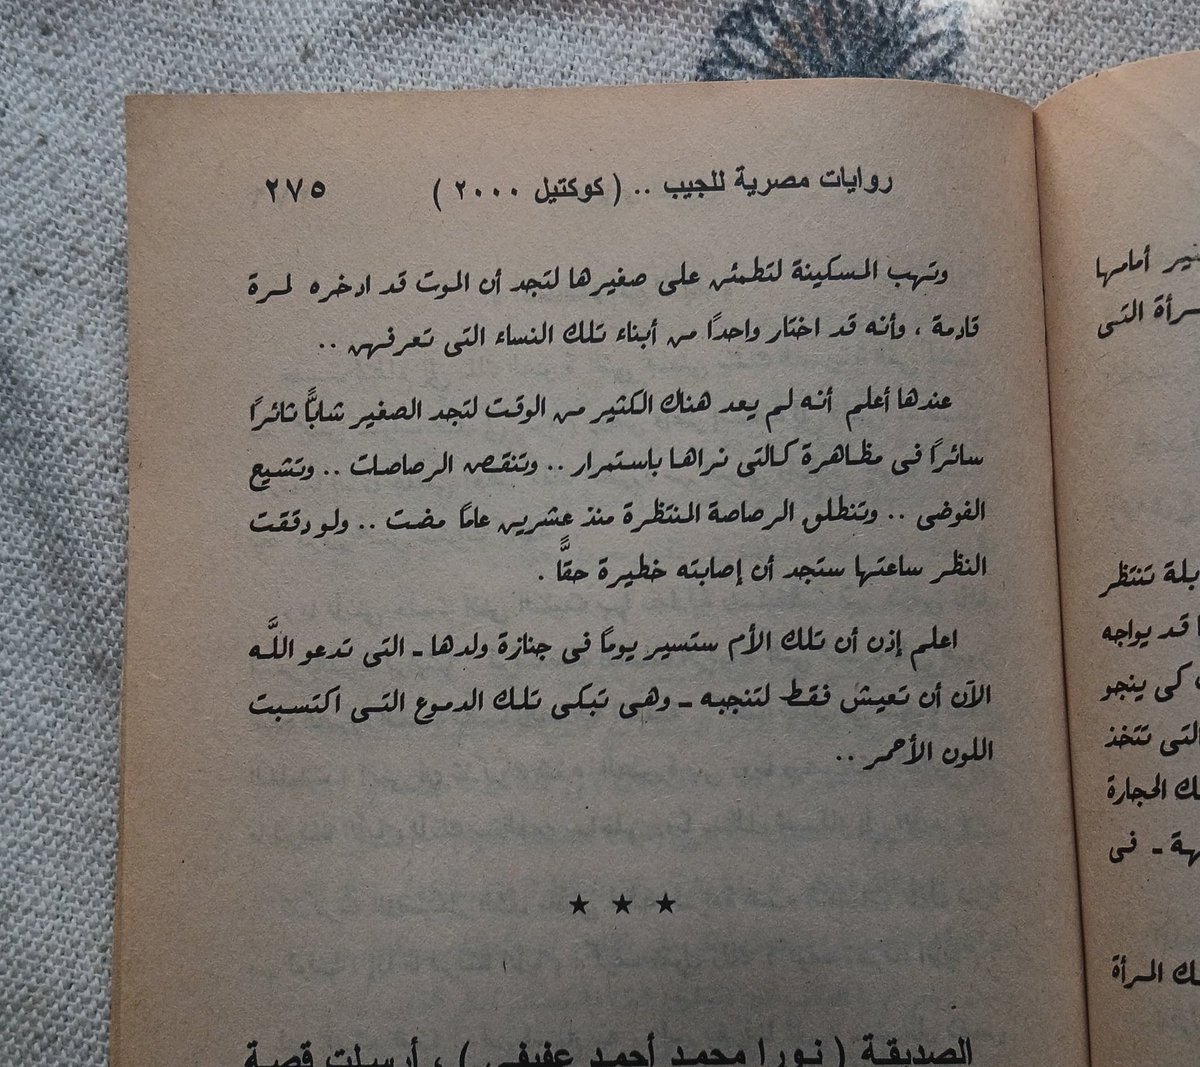 روايات مصرية للجيب .. ( كوكتيل ٢٠٠٠ ) ٢٧٥
وتهب المسكينة لتطمئن على صغيرها لتجد أن الموت قد ادخره لمرة
قادمة ، وأنه قد اختار واحدًا من أبناء تلك النساء التى تعرفهن ..
عندها أعلم أنه لم يعد هناك الكثير من الوقت لتجد الصغير شابًّا ثائرًا
سائرًا فى مظاهرة كالتى نراها باستمرار .. وتنقص الرصاصات .. وتشيع
الفوضى .. وتنطلق الرصاصة المنتظرة منذ عشرين عامًا مضت .. ولو دققت
النظر ساعتها ستجد أن إصابته خطيرة حقًّا .
اعلم إذن أن تلك الأم ستسير يومًا فى جنازة ولدها ـ التى تدعو اللَّه
الآن أن تعيش فقط لتنجبه ـ وهى تبكى تلك الدموع التى اكتسبت
اللون الأحمر ..
★ ★ ★
الصديقة ( نورا محمد أحمد عفيفى ) ، أرسلت قصة
أمامها
التى
تنتظر
قد يواجه
كى ينجو
التى تتخذ
الحجارة
ـ فى
المرأة